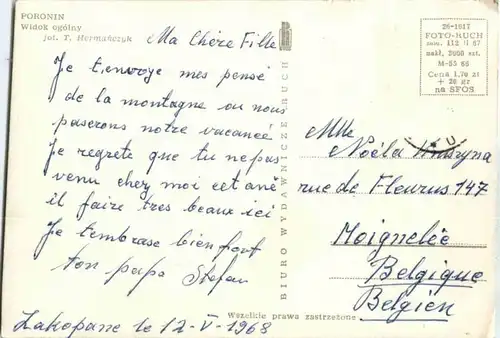 PORONIN
Widok ogólny
fot. T. Hermańczyk
Ma Chère Fille
Je t'envoye mes pensé
de la montagne ou nous
paserons notre vacanceé
Je regrete que tu ne pus
venu chez moi cet ané
il faire tres beaux ici
Je t'embrase bien fort
ton papa Stefan
Zakopane le 12-V-1968
BIURO WYDAWNICZE "RUCH"
26-1617
FOTO-RUCH
zam. 112 II 67
nakł. 3000 egz.
M-55 66
Cena 1,70 zł
+ 20 gr
na SFOS
Mlle
Noéla
rue de Fleurus 147
Moignelée
Belgique
Belgien
Wszelkie prawa zastrzeżone